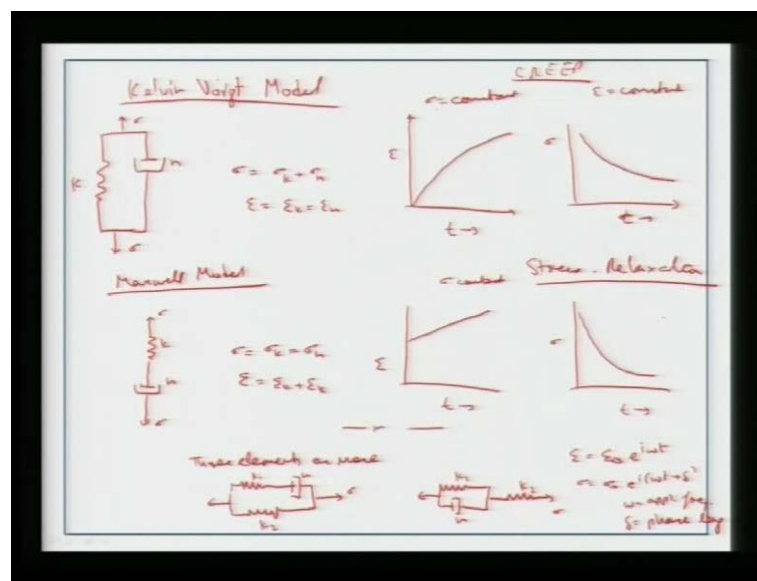 CREEP
Kelvin Voigt Model
σ=constant
ε=constant
σ
K
η
σ = σk + ση
ε = εk = εη
σ
ε
t→
σ
t→
Maxwell Model
σ constant
Stress-Relaxation
σ
k
η
σ
σ = σk =ση
ε = εk + εk
ε
t→
σ
t→
Three elements or more
K1
η
σ
K2
K1
K2
η
σ
ε = ε0 e^iωt
σ = σ0 e^i(ωt+δ)
ω = appl. freq.
δ = phase lag